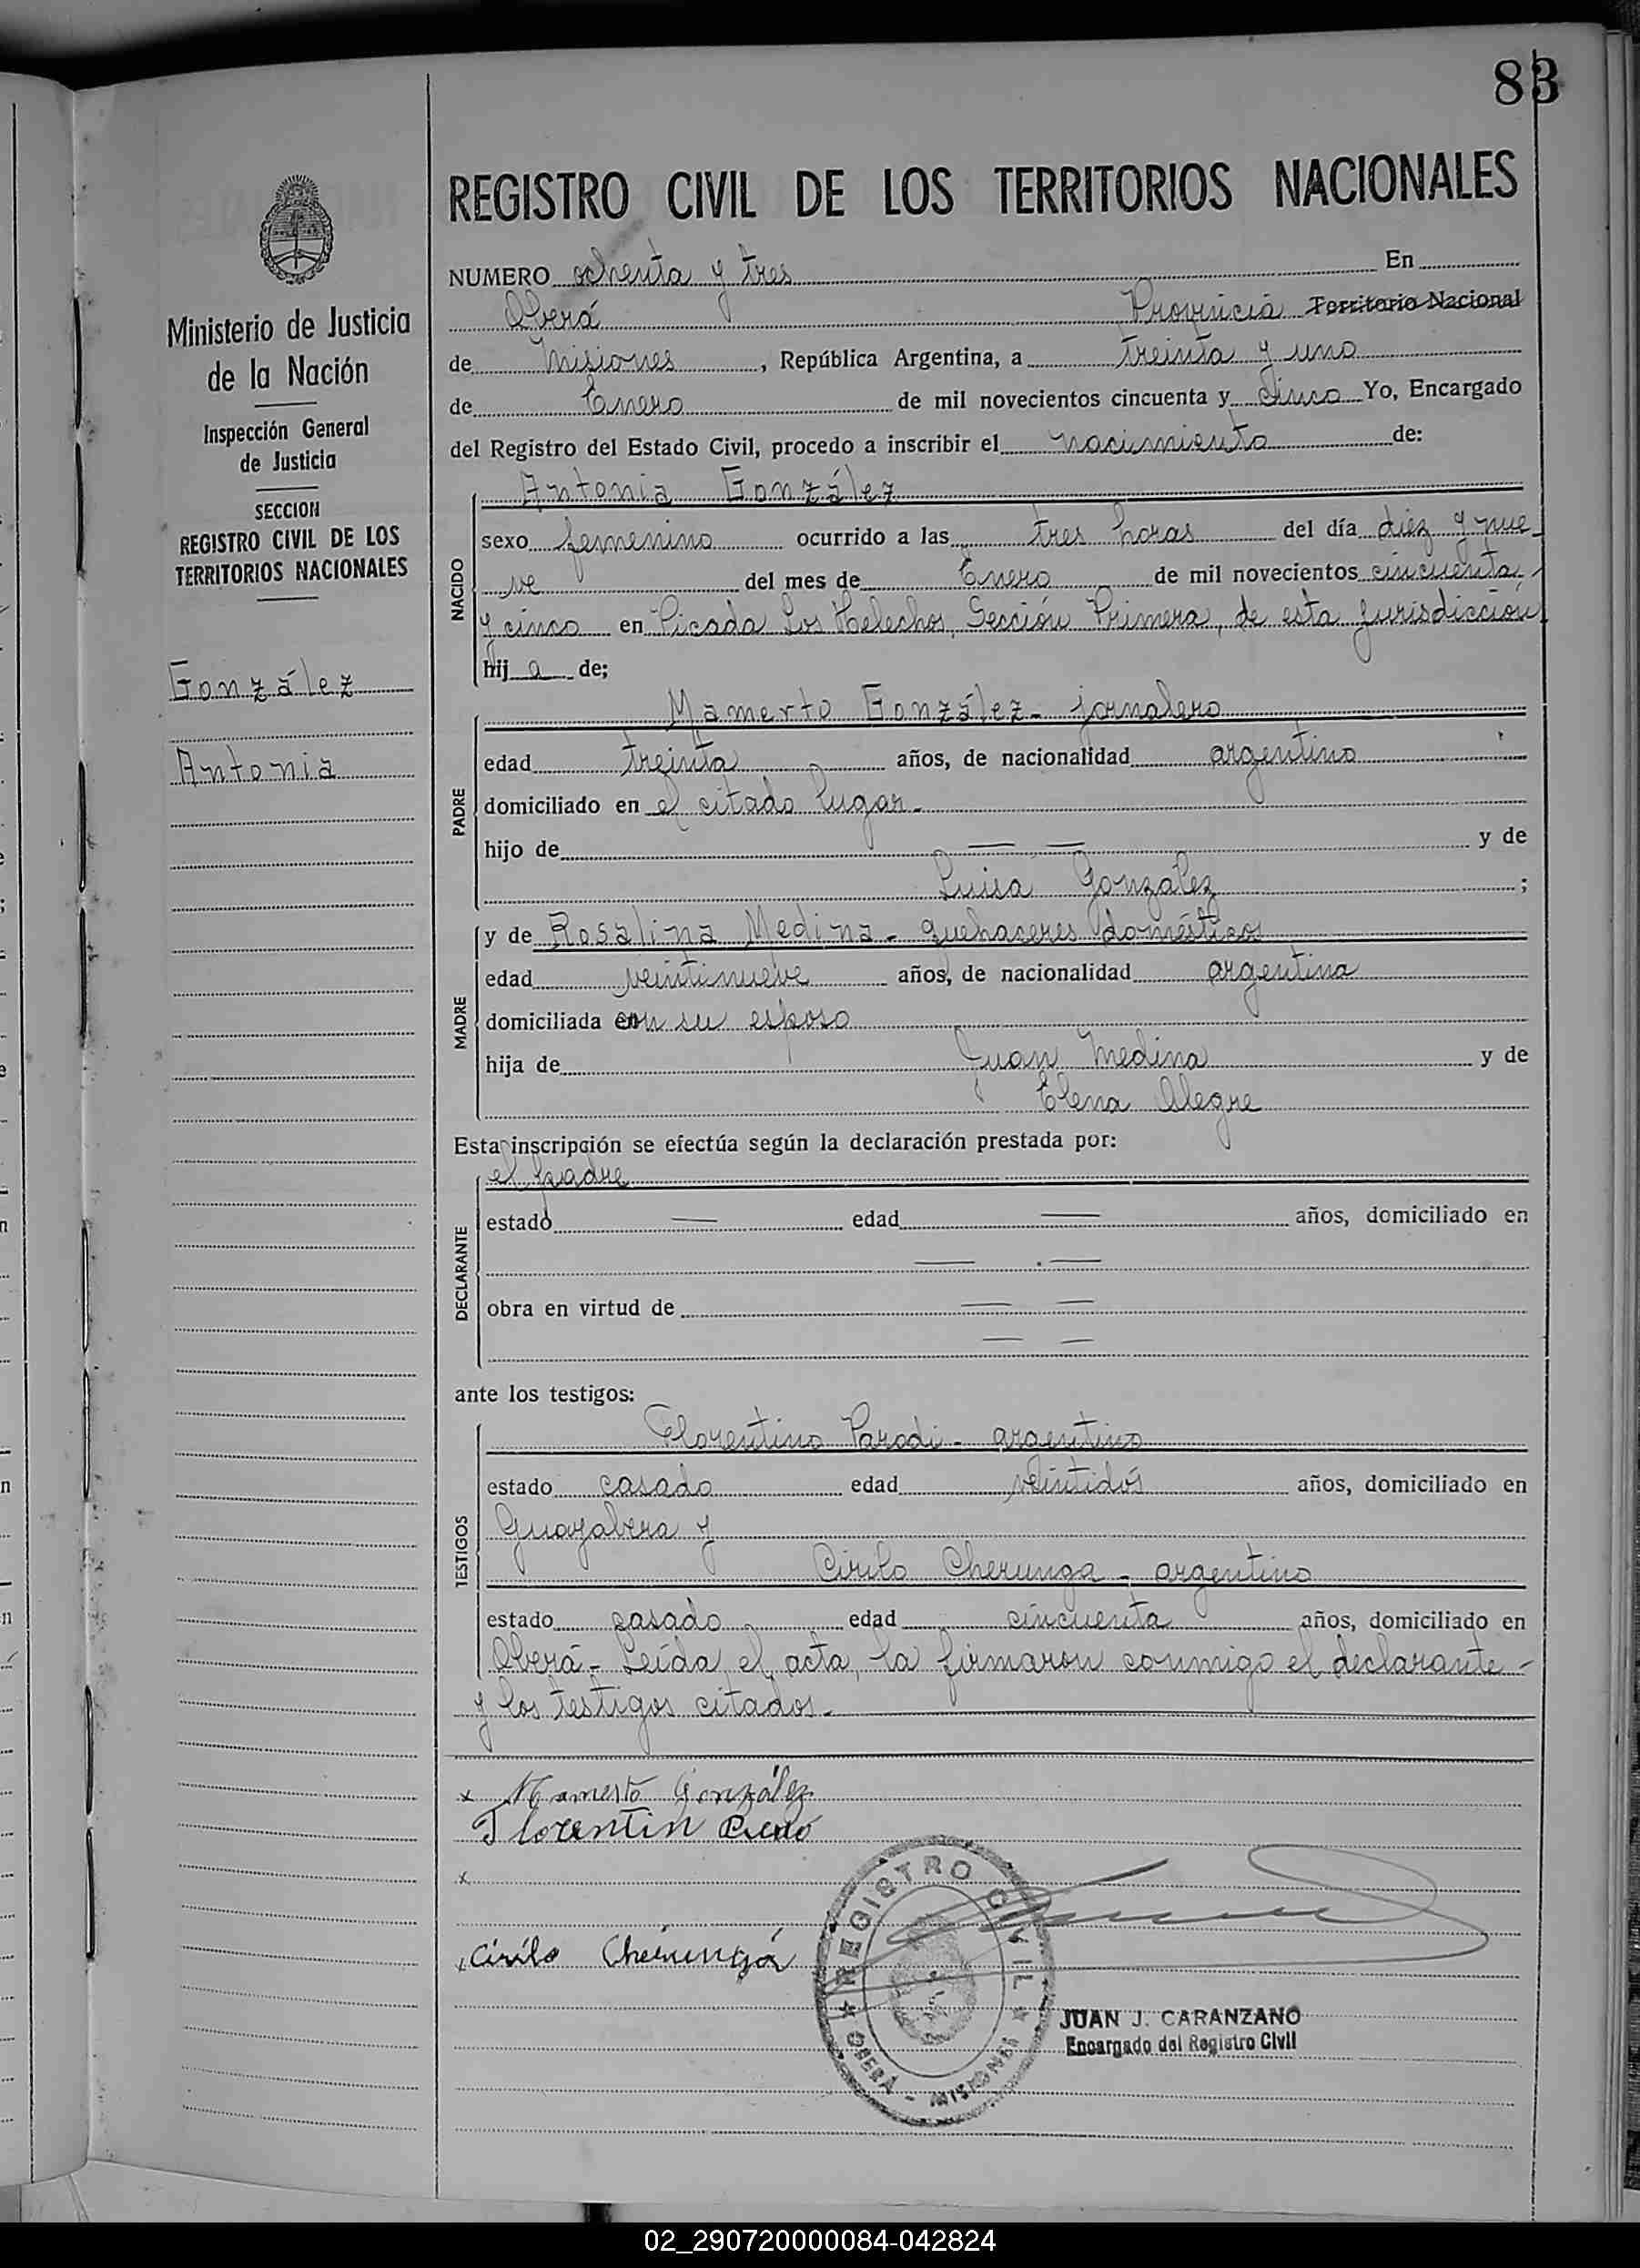 83
REGISTRO CIVIL DE LOS TERRITORIOS NACIONALES
Ministerio de Justicia
de la Nación
Inspección General
de Justicia
SECCION
REGISTRO CIVIL DE LOS
TERRITORIOS NACIONALES
González
Antonia
NUMERO ochenta y tres En
Oberá Provincia Territorio Nacional
de Misiones, República Argentina, a treinta y uno
de Enero de mil novecientos cincuenta y cinco Yo, Encargado
del Registro del Estado Civil, procedo a inscribir el nacimiento de:
NACIDO
Antonia González
sexo femenino ocurrido a las tres horas del día diez y nue-
ve del mes de Enero de mil novecientos cincuenta
y cinco en Picada Los Helechos, Sección Primera, de esta jurisdicción
hij a de;
PADRE
Mamerto González - jornalero
edad treinta años, de nacionalidad argentino
domiciliado en el citado lugar.
hijo de — — y de
Luisa González ;
MADRE
y de Rosalina Medina - quehaceres domésticos
edad veintinueve años, de nacionalidad argentina
domiciliada con su esposo
hija de Juan Medina y de
Elena Alegre
Esta inscripción se efectúa según la declaración prestada por:
DECLARANTE
el padre
estado — edad — años, domiciliado en
— —
obra en virtud de — —
— —
ante los testigos:
TESTIGOS
Florentino Parodi - argentino
estado casado edad veintidós años, domiciliado en
Guayabera y
Cirilo Cherunga - argentino
estado casado edad cincuenta años, domiciliado en
Oberá - Leída el acta, la firmaron conmigo el declarante -
y los testigos citados.
x Mamerto González
Florentin
x
Cirilo Cherunga
REGISTRO CIVIL
OBERÁ - MISIONES
JUAN J. CARANZANO
Encargado del Registro Civil
02_290720000084-042824